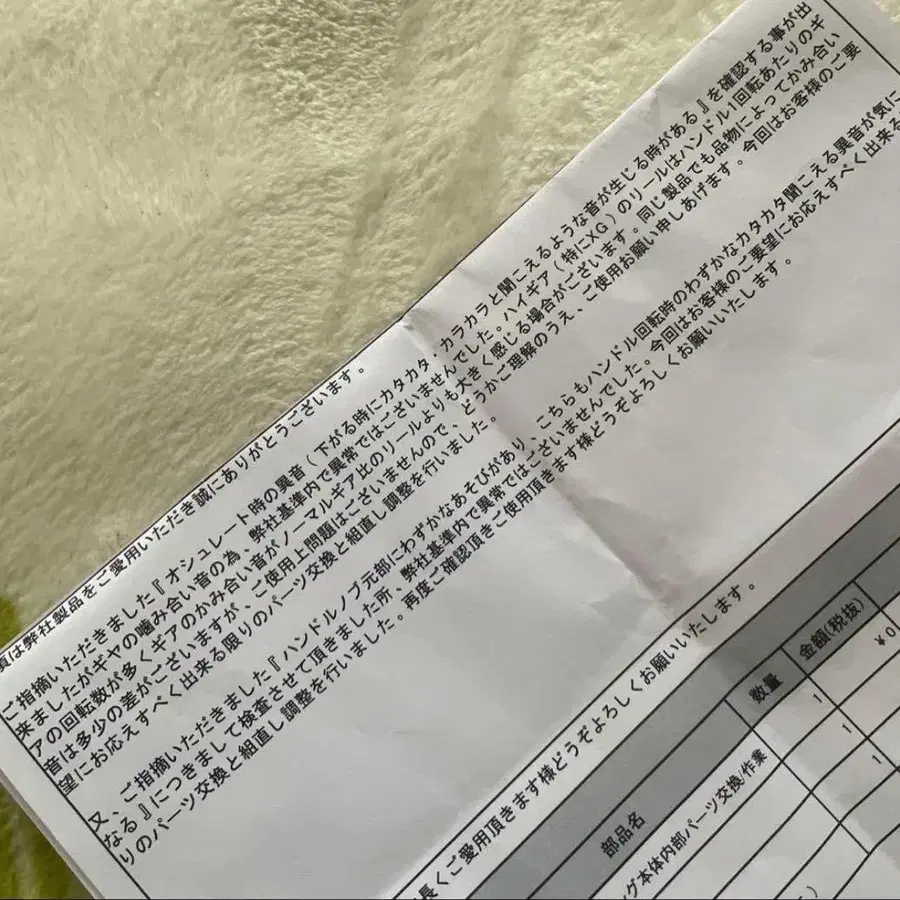 頃は弊社製品をご愛用いただき誠にありがとうございます。
ご指摘いただきました『オシュレート時の異音(下がる時にカタカタ、カラカラと聞こえるような音が生じる時がある』を確認する事が出
来ましたがギヤの噛み合い音の為、弊社基準内で異常ではございませんでした。ハイギア(特にXG)のリールはハンドル1回転あたりのギ
アの回転数が多くギアのかみ合い音がノーマルギア比のリールよりも大きく感じる場合がございます。同じ製品でも品物によってかみ合い
音は多少の差がございますが、ご使用上問題はございませんので、どうかご理解のうえ、ご使用お願い申しあげます。今回はお客様のご要
望にお応えすべく出来る限りのパーツ交換と組直し調整を行いました。
又、ご指摘いただきました『ハンドルノブ元部にわずかなあそびがあり、こちらもハンドル回転時のわずかなカタカタ聞こえる異音が気に
なる』につきまして検査させて頂きました所、弊社基準内で異常ではございませんでした。今回はお客様のご要望にお応えすべく出来る
りのパーツ交換と組直し調整を行いました。再度ご確認頂きご使用頂きます様どうぞよろしくお願いいたします。
長くご愛用頂きます様どうぞよろしくお願いいたします。
部品名 数量 金額(税抜)
グ本体内部パーツ交換/作業 1 ¥0
1
1